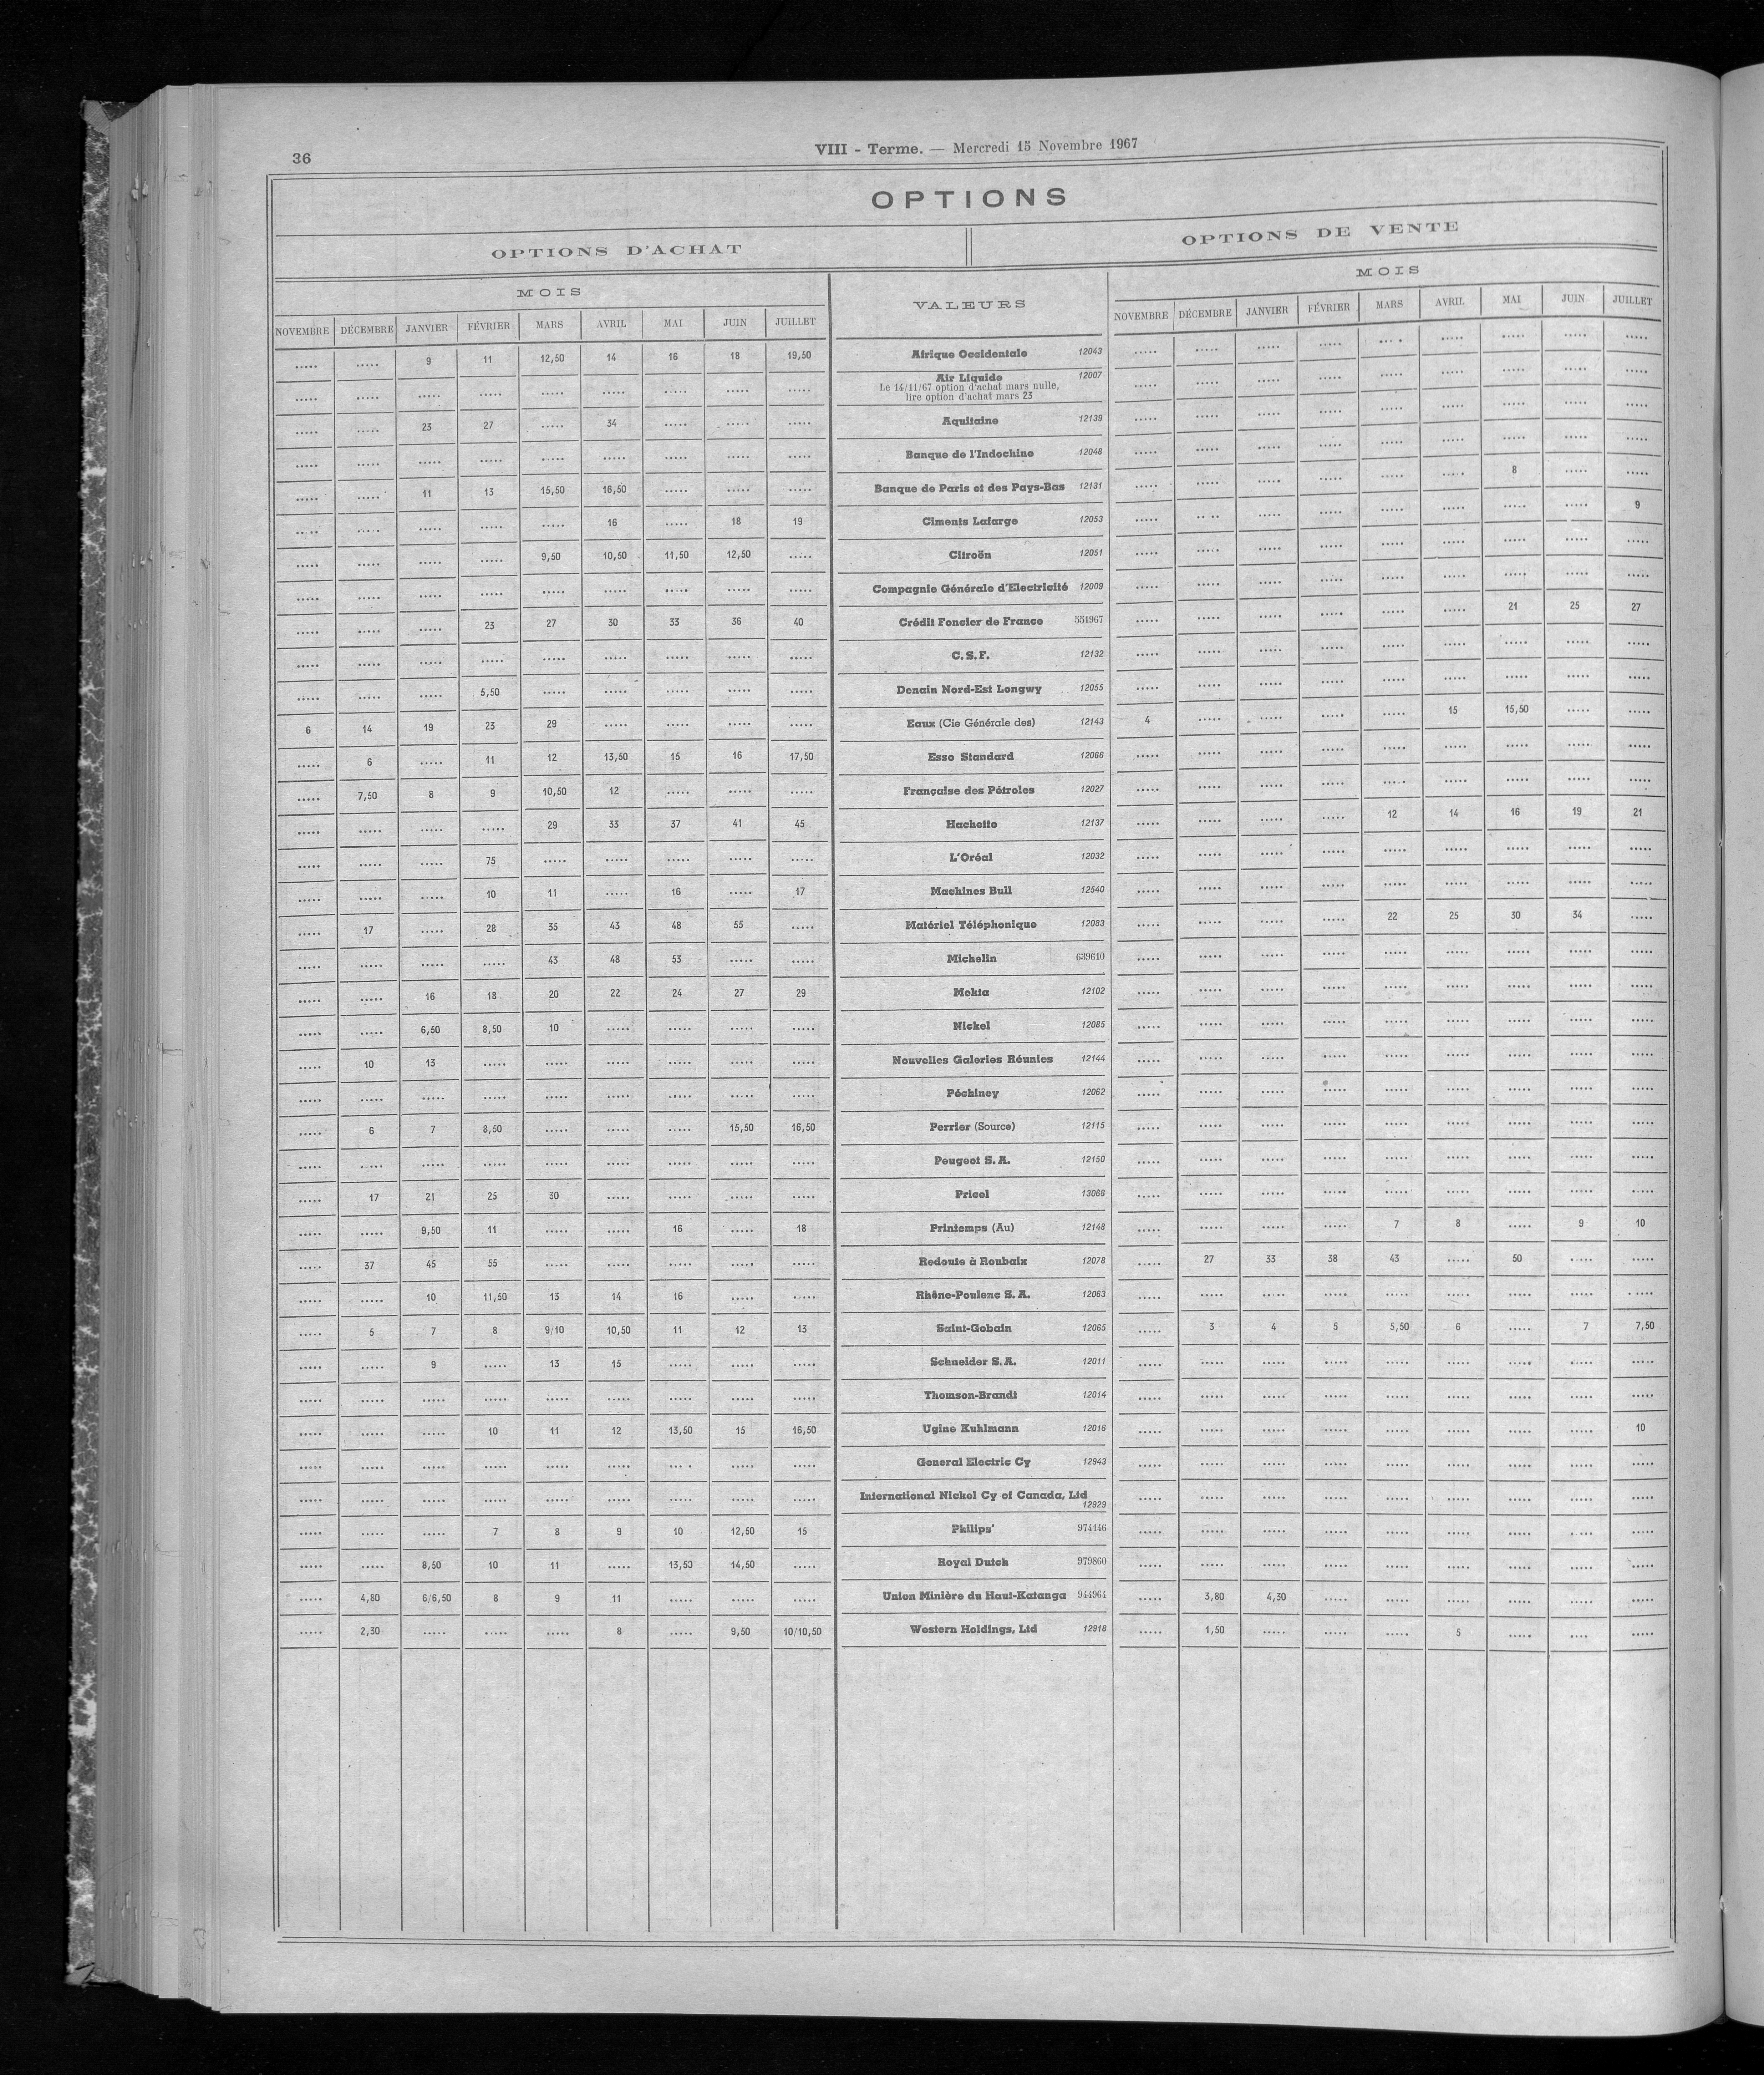 36
VIII - Terme. — Mercredi 15 Novembre 1967
OPTIONS
OPTIONS D'ACHAT OPTIONS DE VENTE
MOIS VALEURS MOIS
NOVEMBRE DÉCEMBRE JANVIER FÉVRIER MARS AVRIL MAI JUIN JUILLET NOVEMBRE DÉCEMBRE JANVIER FÉVRIER MARS AVRIL MAI JUIN JUILLET
..... ..... 9 11 12,50 14 16 18 19,50 Afrique Occidentale 12043 ..... ..... ..... ..... ..... ..... ..... ..... .....
..... ..... ..... ..... ..... ..... ..... ..... ..... Air Liquide 12007 ..... ..... ..... ..... ..... ..... ..... ..... .....
Le 14/11/67 option d'achat mars nulle,
lire option d'achat mars 23
..... ..... 23 27 ..... 34 ..... ..... ..... Aquitaine 12139 ..... ..... ..... ..... ..... ..... ..... ..... .....
..... ..... ..... ..... ..... ..... ..... ..... ..... Banque de l'Indochine 12048 ..... ..... ..... ..... ..... ..... ..... ..... .....
..... ..... 11 13 15,50 16,50 ..... ..... ..... Banque de Paris et des Pays-Bas 12131 ..... ..... ..... ..... ..... ..... 8 ..... .....
..... ..... ..... ..... ..... 16 ..... 18 19 Ciments Lafarge 12053 ..... ..... ..... ..... ..... ..... ..... ..... 9
..... ..... ..... ..... 9,50 10,50 11,50 12,50 ..... Citroën 12051 ..... ..... ..... ..... ..... ..... ..... ..... .....
..... ..... ..... ..... ..... ..... ..... ..... ..... Compagnie Générale d'Electricité 12009 ..... ..... ..... ..... ..... ..... ..... ..... .....
..... ..... ..... 23 27 30 33 36 40 Crédit Foncier de France 551967 ..... ..... ..... ..... ..... ..... 21 25 27
..... ..... ..... ..... ..... ..... ..... ..... ..... C.S.F. 12132 ..... ..... ..... ..... ..... ..... ..... ..... .....
..... ..... ..... 5,50 ..... ..... ..... ..... ..... Denain Nord-Est Longwy 12055 ..... ..... ..... ..... ..... ..... ..... ..... .....
6 14 19 23 29 ..... ..... ..... ..... Eaux (Cie Générale des) 12143 4 ..... ..... ..... ..... 15 15,50 ..... .....
..... 6 ..... 11 12 13,50 15 16 17,50 Esso Standard 12066 ..... ..... ..... ..... ..... ..... ..... ..... .....
..... 7,50 8 9 10,50 12 ..... ..... ..... Française des Pétroles 12027 ..... ..... ..... ..... ..... ..... ..... ..... .....
..... ..... ..... ..... 29 33 37 41 45 Hachette 12137 ..... ..... ..... ..... 12 14 16 19 21
..... ..... ..... 75 ..... ..... ..... ..... ..... L'Oréal 12032 ..... ..... ..... ..... ..... ..... ..... ..... .....
..... ..... ..... 10 11 ..... 16 ..... 17 Machines Bull 12540 ..... ..... ..... ..... ..... ..... ..... ..... .....
..... 17 ..... 28 35 43 48 55 ..... Matériel Téléphonique 12083 ..... ..... ..... ..... 22 25 30 34 .....
..... ..... ..... ..... 43 48 53 ..... ..... Michelin 639610 ..... ..... ..... ..... ..... ..... ..... ..... .....
..... ..... 16 18 20 22 24 27 29 Mokta 12102 ..... ..... ..... ..... ..... ..... ..... ..... .....
..... ..... 6,50 8,50 10 ..... ..... ..... ..... Nickel 12085 ..... ..... ..... ..... ..... ..... ..... ..... .....
..... 10 13 ..... ..... ..... ..... ..... ..... Nouvelles Galeries Réunies 12144 ..... ..... ..... ..... ..... ..... ..... ..... .....
..... ..... ..... ..... ..... ..... ..... ..... ..... Péchiney 12062 ..... ..... ..... ..... ..... ..... ..... ..... .....
..... 6 7 8,50 ..... ..... ..... 15,50 16,50 Perrier (Source) 12115 ..... ..... ..... ..... ..... ..... ..... ..... .....
..... ..... ..... ..... ..... ..... ..... ..... ..... Peugeot S.A. 12150 ..... ..... ..... ..... ..... ..... ..... ..... .....
..... 17 21 25 30 ..... ..... ..... ..... Pricel 13066 ..... ..... ..... ..... ..... ..... ..... ..... .....
..... ..... 9,50 11 ..... ..... 16 ..... 18 Printemps (Au) 12148 ..... ..... ..... ..... 7 8 ..... 9 10
..... 37 45 55 ..... ..... ..... ..... ..... Redoute à Roubaix 12078 ..... 27 33 38 43 ..... 50 ..... .....
..... ..... 10 11,50 13 14 16 ..... ..... Rhône-Poulenc S.A. 12063 ..... ..... ..... ..... ..... ..... ..... ..... .....
..... 5 7 8 9/10 10,50 11 12 13 Saint-Gobain 12065 ..... 3 4 5 5,50 6 ..... 7 7,50
..... ..... 9 ..... 13 15 ..... ..... ..... Schneider S.A. 12011 ..... ..... ..... ..... ..... ..... ..... ..... .....
..... ..... ..... ..... ..... ..... ..... ..... ..... Thomson-Brandt 12014 ..... ..... ..... ..... ..... ..... ..... ..... .....
..... ..... ..... 10 11 12 13,50 15 16,50 Ugine Kuhlmann 12016 ..... ..... ..... ..... ..... ..... ..... ..... 10
..... ..... ..... ..... ..... ..... ..... ..... ..... General Electric Cy 12943 ..... ..... ..... ..... ..... ..... ..... ..... .....
..... ..... ..... ..... ..... ..... ..... ..... ..... International Nickel Cy of Canada, Ltd 12929 ..... ..... ..... ..... ..... ..... ..... ..... .....
..... ..... ..... 7 8 9 10 12,50 15 Philips' 974146 ..... ..... ..... ..... ..... ..... ..... ..... .....
..... ..... 8,50 10 11 ..... 13,50 14,50 ..... Royal Dutch 979860 ..... ..... ..... ..... ..... ..... ..... ..... .....
..... 4,80 6/6,50 8 9 11 ..... ..... ..... Union Minière du Haut-Katanga 944964 ..... 3,80 4,30 ..... ..... ..... ..... ..... .....
..... 2,30 ..... ..... ..... 8 ..... 9,50 10/10,50 Western Holdings, Ltd 12918 ..... 1,50 ..... ..... ..... 5 ..... .... .....